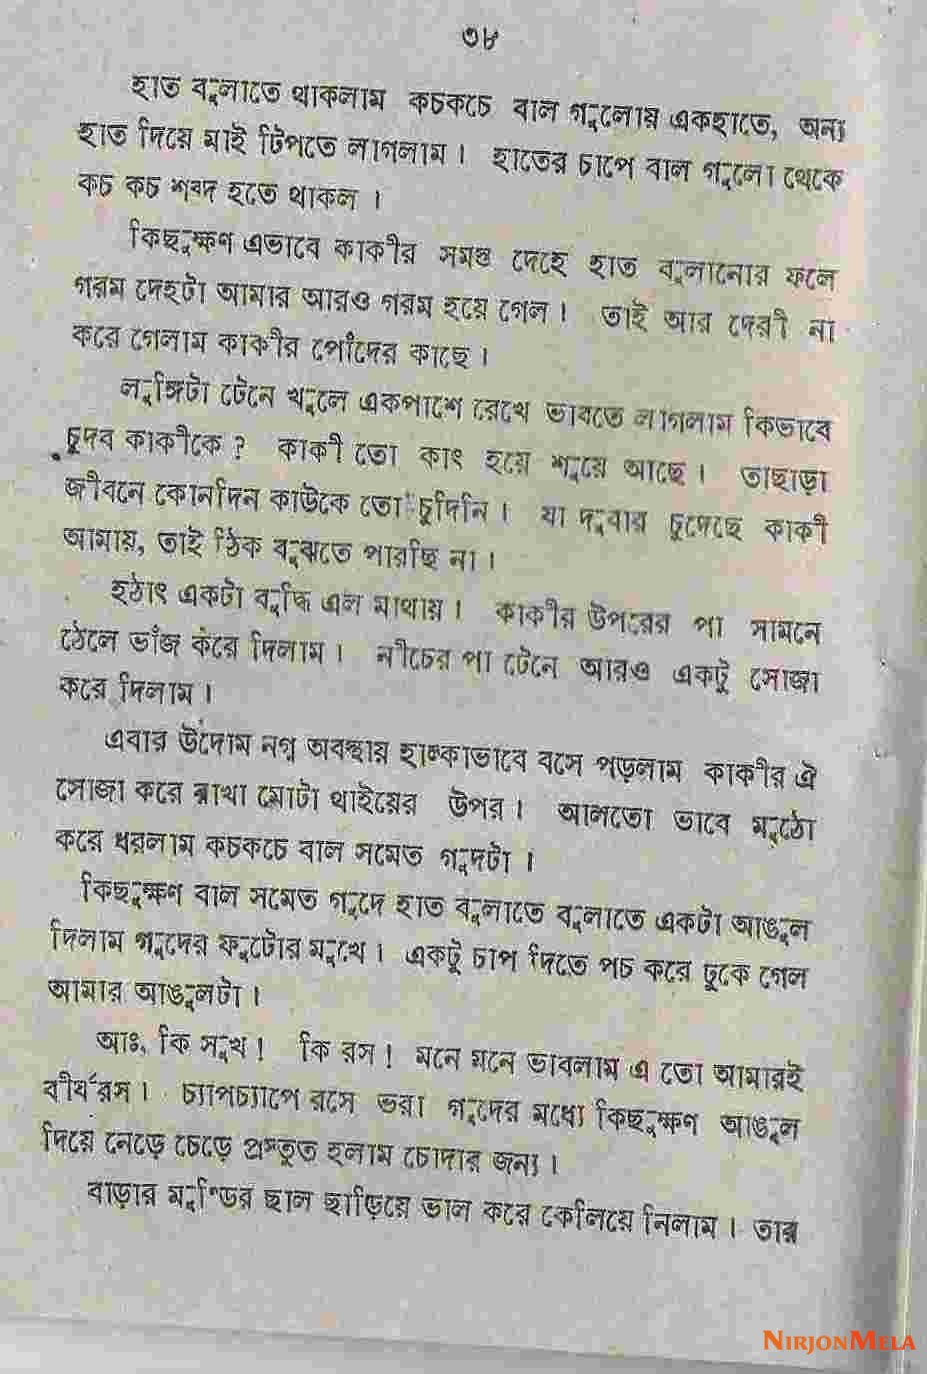 ৩৮
হাত বুলাতে থাকলাম কচকচে বাল গুলোয় একহাতে, অন্য
হাত দিয়ে মাই টিপতে লাগলাম। হাতের চাপে বাল গুলো থেকে
কচ কচ শব্দ হতে থাকল।
কিছুক্ষণ এভাবে কাকীর সমস্ত দেহে হাত বুলানোর ফলে
গরম দেহটা আমার আরও গরম হয়ে গেল। তাই আর দেরী না
করে গেলাম কাকীর পোঁদের কাছে।
লুঙ্গিটা টেনে খুলে একপাশে রেখে ভাবতে লাগলাম কিভাবে
চুদব কাকীকে? কাকী তো কাৎ হয়ে শুয়ে আছে। তাছাড়া
জীবনে কোনদিন কাউকে তো চুদিনি। যা দুবার চুদেছে কাকী
আমায়, তাই ঠিক বুঝতে পারছি না।
হঠাৎ একটা বুদ্ধি এল মাথায়। কাকীর উপরের পা সামনে
ঠেলে ভাঁজ করে দিলাম। নীচের পা টেনে আরও একটু সোজা
করে দিলাম।
এবার উদোম নগ্ন অবস্থায় হাল্কাভাবে বসে পড়লাম কাকীর ঐ
সোজা করে রাখা মোটা থাইয়ের উপর। আলতো ভাবে মুঠো
করে ধরলাম কচকচে বাল সমেত গুদটা।
কিছুক্ষণ বাল সমেত গুদে হাত বুলাতে বুলাতে একটা আঙুল
দিলাম গুদের ফুটোর মুখে। একটু চাপ দিতে পচ করে ঢুকে গেল
আমার আঙুলটা।
আঃ, কি সুখ! কি রস! মনে মনে ভাবলাম এ তো আমারই
বীর্যরস। চ্যাপচ্যাপে রসে ভরা গুদের মধ্যে কিছুক্ষণ আঙুল
দিয়ে নেড়ে চেড়ে প্রস্তুত হলাম চোদার জন্য।
বাড়ার মুণ্ডির ছাল ছাড়িয়ে ভাল করে কেলিয়ে নিলাম। তার
NIRJONMELA